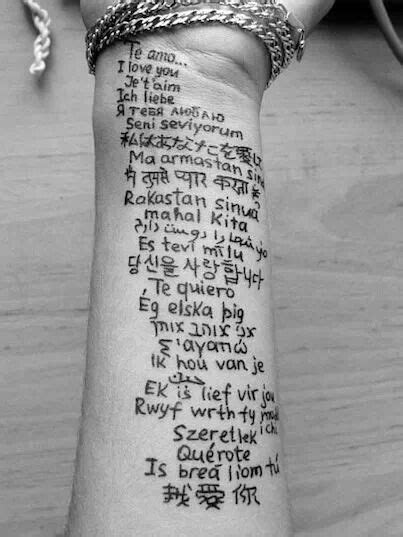 Te amo...
I love you
Je't'aim
Ich liebe
Я ТЕБЯ ЛЮБЛЮ
Seni seviyorum
私はあなたを愛し
Ma armastan sind
मैं तुमसे प्यार करता
Rakastan sinua
mahal Kita
شما را دوست دارم
Es tevi mīlu
당신을 사랑합니다
Te quiero
Ég elska þig
אני אוהב אותך
Σ'αγαπώ
Ik hou van je
Ek is lief vir jou
Rwyf wrth fy modd
ichi
Szeretlek
Quérote
Is breá liom tú
我愛你